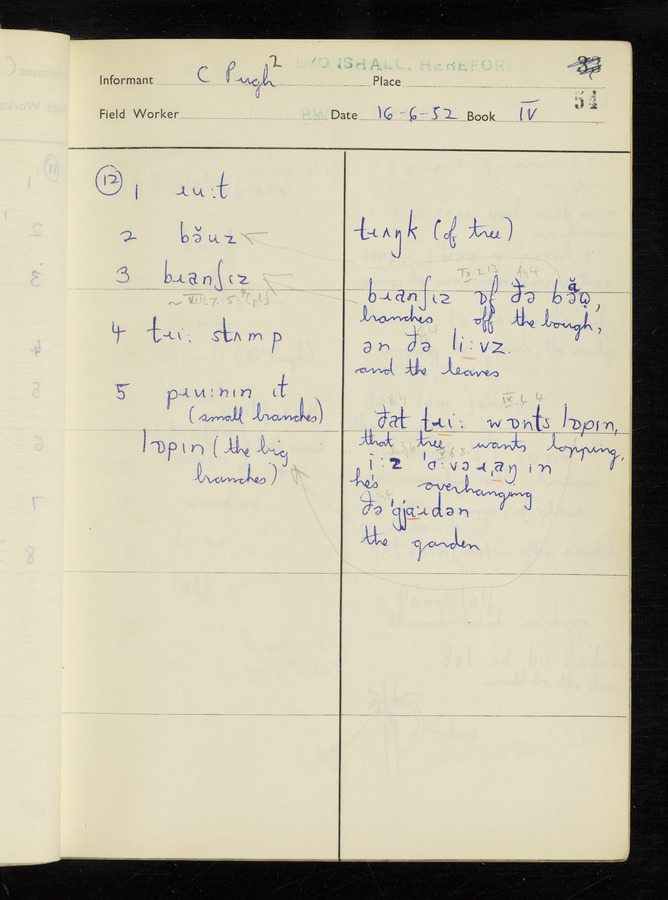 LYONSHALL, HEREFORD
Informant C Pugh 2 Place
54
Field Worker Date 16-6-52 Book IV
12
1 ɹu:t
2 bə̆uz
tɹʌŋk (of tree)
3 bɹanʃɪz
~ VIII.7.5. (pl)
4 tɹi: stʌmp
5 pɹu:nɪn ɪt
(small branches)
lɒpɪn (the big
branches)
IX.2.13
bɹanʃɪz ɒf ðə bə̆ʊ,
branches off the bough,
ən ðə li:vz.
and the leaves
IX.4.4
ðat tɹi: wɒnts lɒpɪn,
that tree wants lopping,
i:z 'ɔ:vəɹˌaŋɪn
he's overhanging
ðə 'gjaːɹdən
the garden